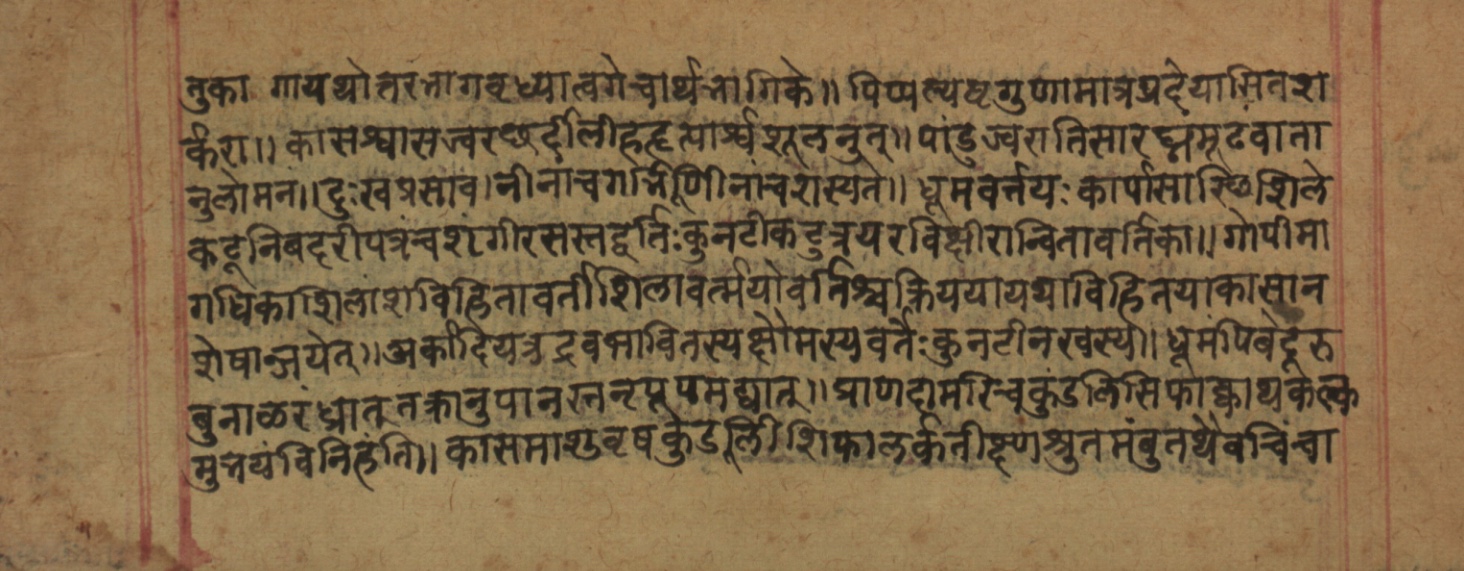 नुका गायथोत्तरभागवृध्यात्वगेचार्थभागिके॥ पिप्पल्यष्टगुणामात्रप्रदेयासितश
र्करा॥ कासश्वासज्वरछर्दिलीहहृत्पार्श्वशूलनुत्॥ पांडुज्वरातिसारघ्नंमूढवाता
नुलोमनं॥ दुःखप्रसाव।नीनांचगर्भिणीनांचशस्यते॥ धूमवर्त्तयः कार्पासास्थिशिले
कटूनिबदरीपत्रंचशृंगीरसस्तद्वर्तिःकुनटीकटुत्रयरविक्षीरान्वितावर्तिका॥ गोपीमा
गधिकाशिलांशविहितावर्तीशिलावर्त्मयोर्वर्तिश्चक्रिययायथाविहितयाकासान
शेषाञ्जयेत्॥ अर्कादियत्रद्रवभावितस्यक्षौमस्यवर्तेःकुनटीनखस्य॥ धूमंपिबेदूरु
बुनाळरंध्रात् तक्रानुपान
मुत्रयंविनिहंति॥ कासमाशुवृषकुंडलीशिफालर्कतीक्ष्णश्रुतमंबुतथैवचिंचा